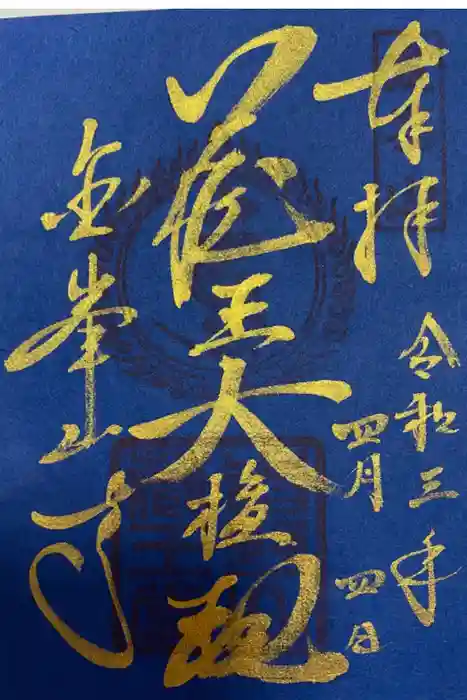 奉拝
令和三年
四月四日
蔵王大権現
金峯山寺